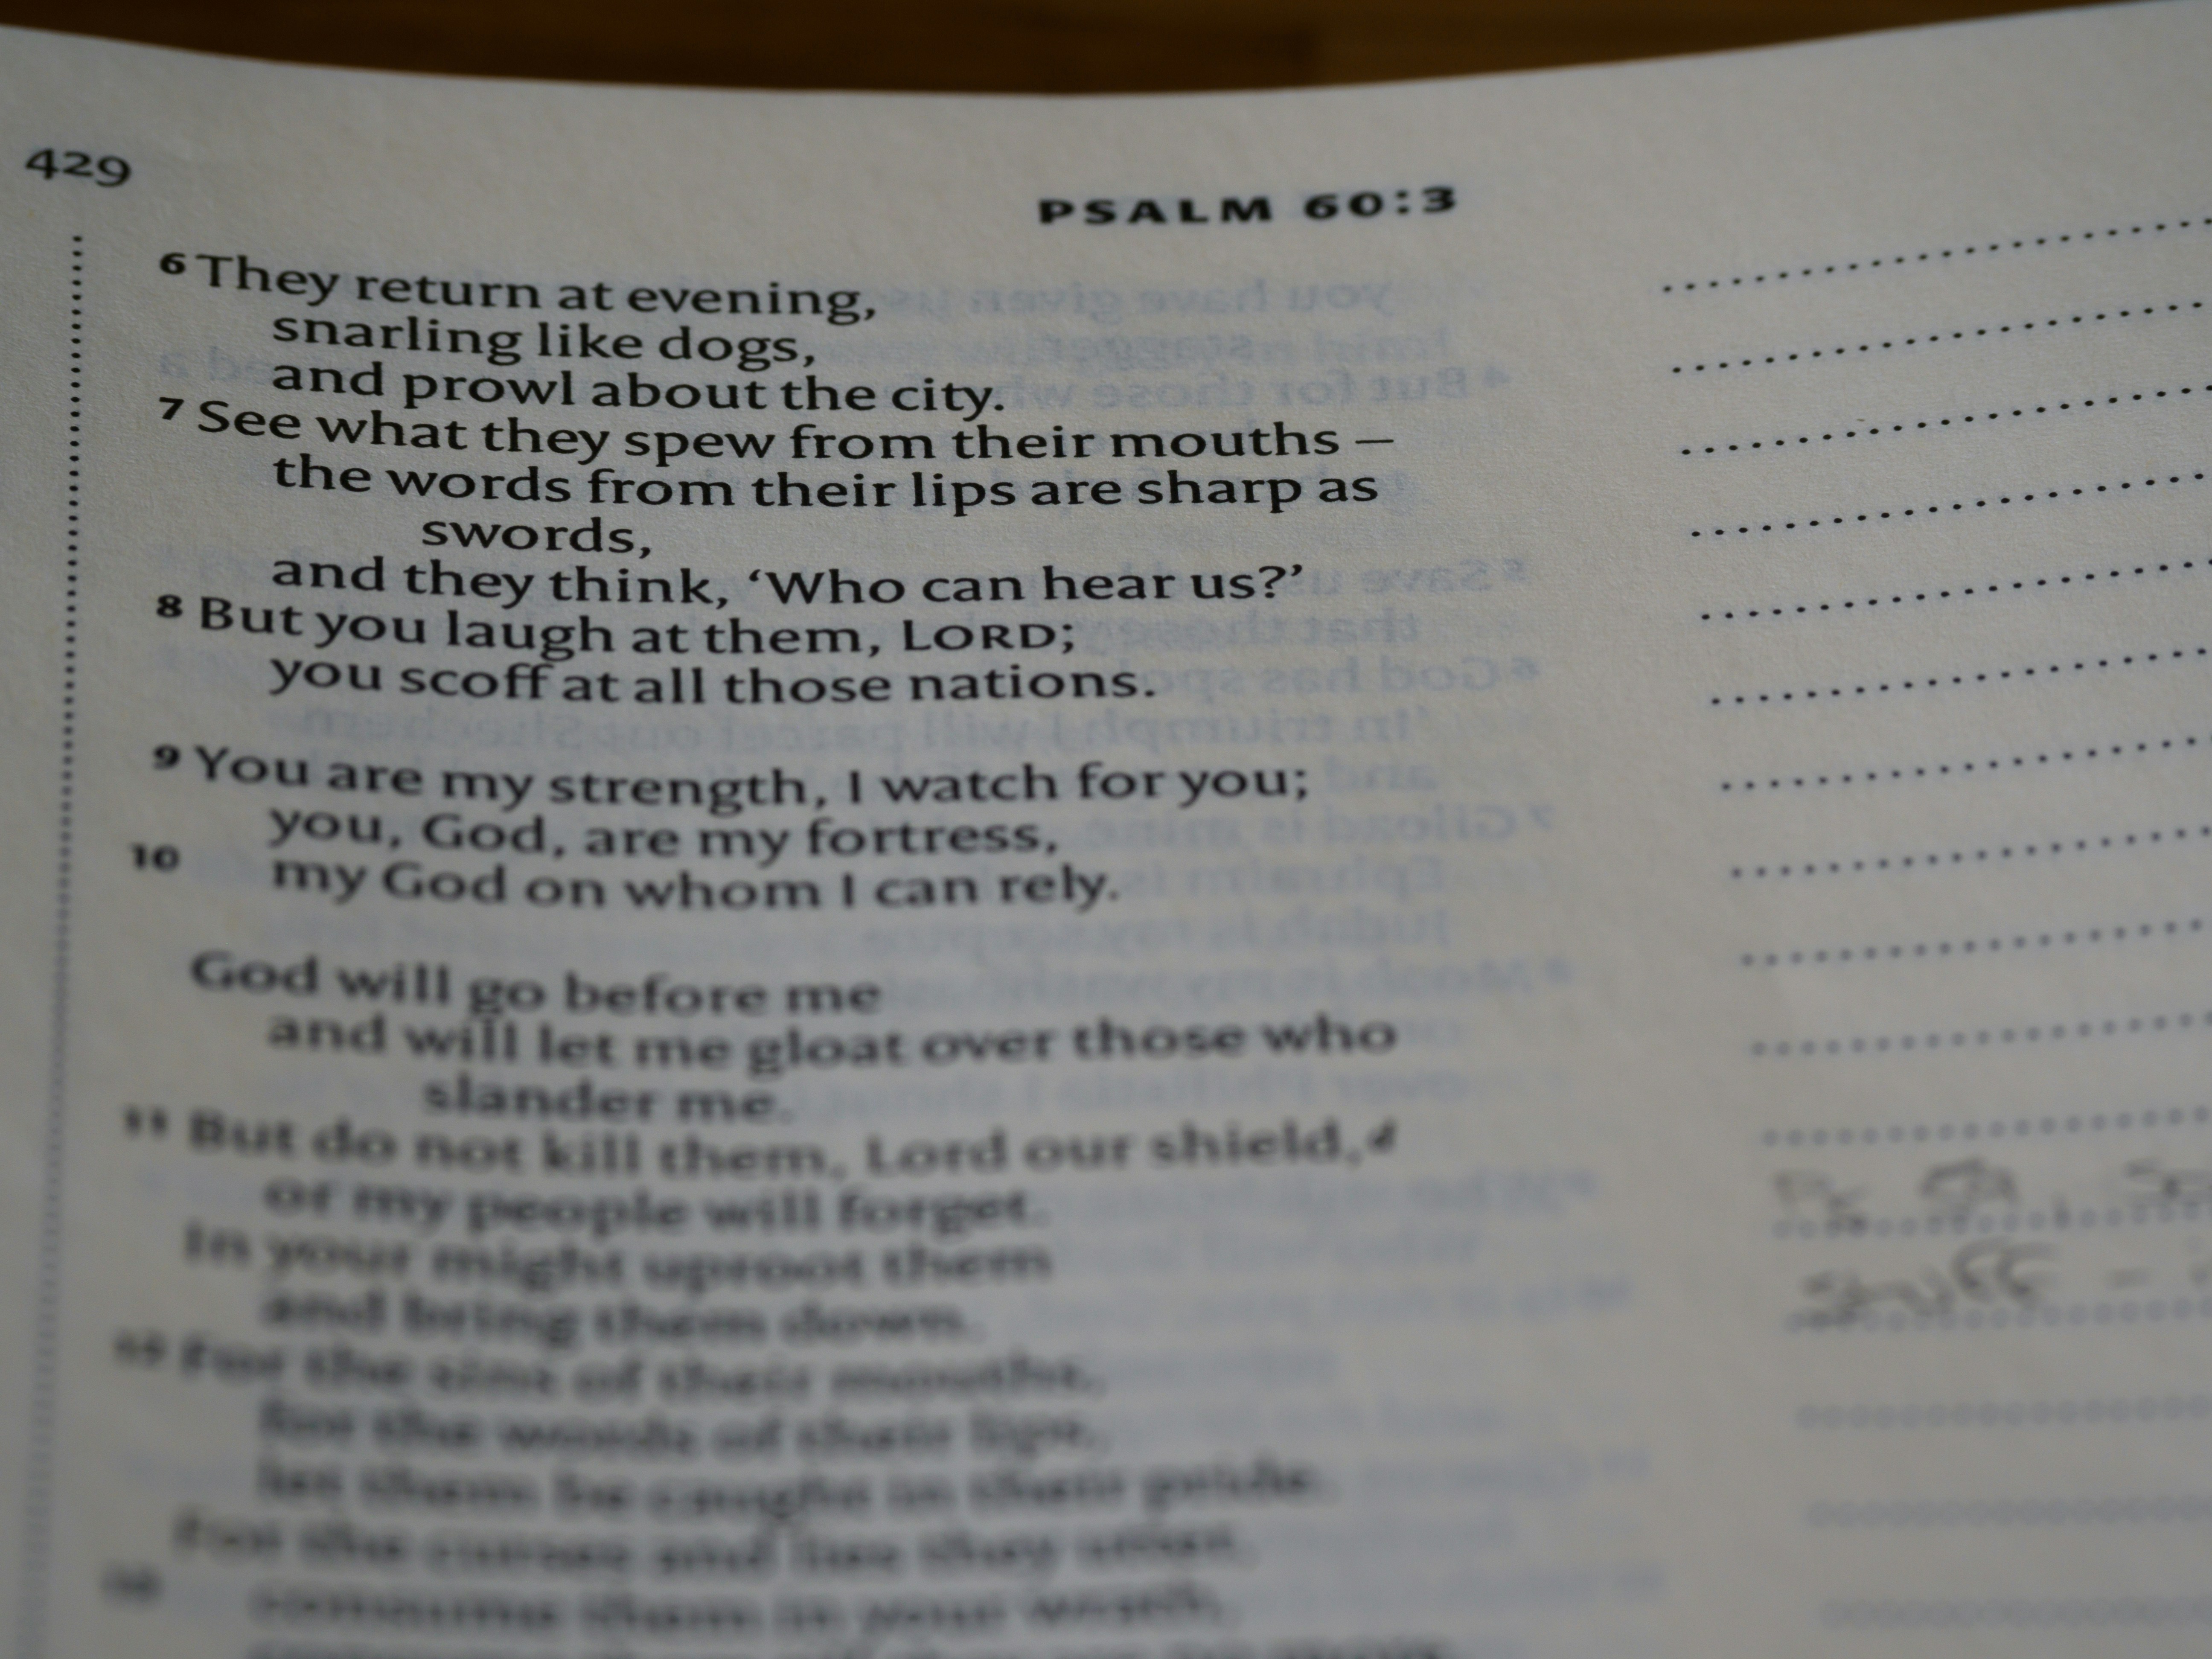 429
PSALM 60:3
6 They return at evening,
snarling like dogs,
and prowl about the city.
7 See what they spew from their mouths –
the words from their lips are sharp as
swords,
and they think, ‘Who can hear us?’
8 But you laugh at them, LORD;
you scoff at all those nations.
9 You are my strength, I watch for you;
you, God, are my fortress,
10 my God on whom I can rely.
God will go before me
and will let me gloat over those who
slander me.
11 But do not kill them, Lord our shield,d
or my people will forget.
In your might uproot them
and bring them down.
12 For the sins of their mouths,
for the words of their lips,
let them be caught in their pride.
For the curses and lies they utter,
13 consume them in your wrath,